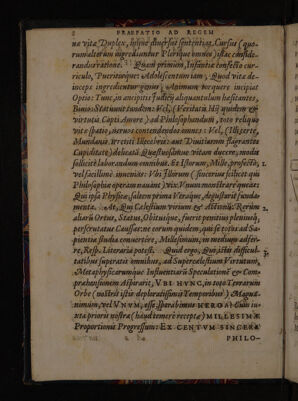 8 PRAEFATIO AD REGEM
næ vitæ Duplex, inque diuersas sententias, Cursus (quorum
alterum ingrediuntur Plerique omnes) isthac considerandus
ratione. Quàm primum, Infantiæ confecto curriculo,
Pueritiæque: Adolescentum iam, Quod vitæ deinceps
ingrediétur genus, Animum torquere incipiat
Optio: Tunc, in ancipitis Iudicij aliquantulum hæsitantes,
Biuio. Statuunt tandem: Vel, (Veritatis Hij quidem et
virtutis Capti Amore) ad Philosophandum, toto reliquo
vitæ spatio, neruos contendendos omnes: Vel, (Illi certè,
Mundanis Irretiti Illecebris aut Diuitiarum flagrantes
Cupiditate) delicatā Quæstuosamue vitam ducere, modis
sollicitè laborandum omnibus. Et Istorum, Mille, profectò,
vel facillimè inuenies: Vbi Illorum (sincerius scilicet qui
Philosophiæ operam nauant) vix Vnum monstrare queas:
Qui ipsa Physicæ, saltem prima Veraque, degustarit fundamenta.
At, Qui Cælestium Virium & Actionum: Rerum
aliarū Ortus, Status, Obitusque, fuerit penitius pleniusq,
perscrutatus Caussas: ne eorum quidem, qui se totus ad Sapientiæ
studia conuertêre, Millesimum, in medium adferre,
Resp. Literaria potest. Quid ergo, Qui, istis difficultatibus
superatis omnibus, ad Supercælestium Virtutum,
Metaphysicarumque Influentiarū Speculationē & Comprahensionem
Aspirarit, VBI HVNC, in toto Terrarum
Orbe (nostris istis deploratissimis Temporibus) Magnanimum,
vel VNVM, esse, sperabimus HEROA: Cum iuxta
prioris nostra (haud temerè recepta) MILLESIMÆ
Proportionis Progressum: EX CENTVM SINCERÆ
PHILO-